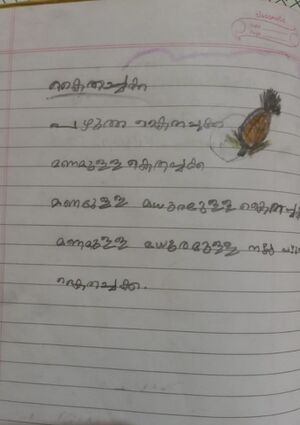 classmate
Date
Page
കൈതച്ചക്ക
പഴുത്ത കൈതച്ചക്ക
മണമുള്ള കൈതച്ചക്ക
മണമുള്ള മധുരമുള്ള കൈതച്ചക്ക
മണമുള്ള മധുരമുള്ള നല്ല
കൈതച്ചക്ക.